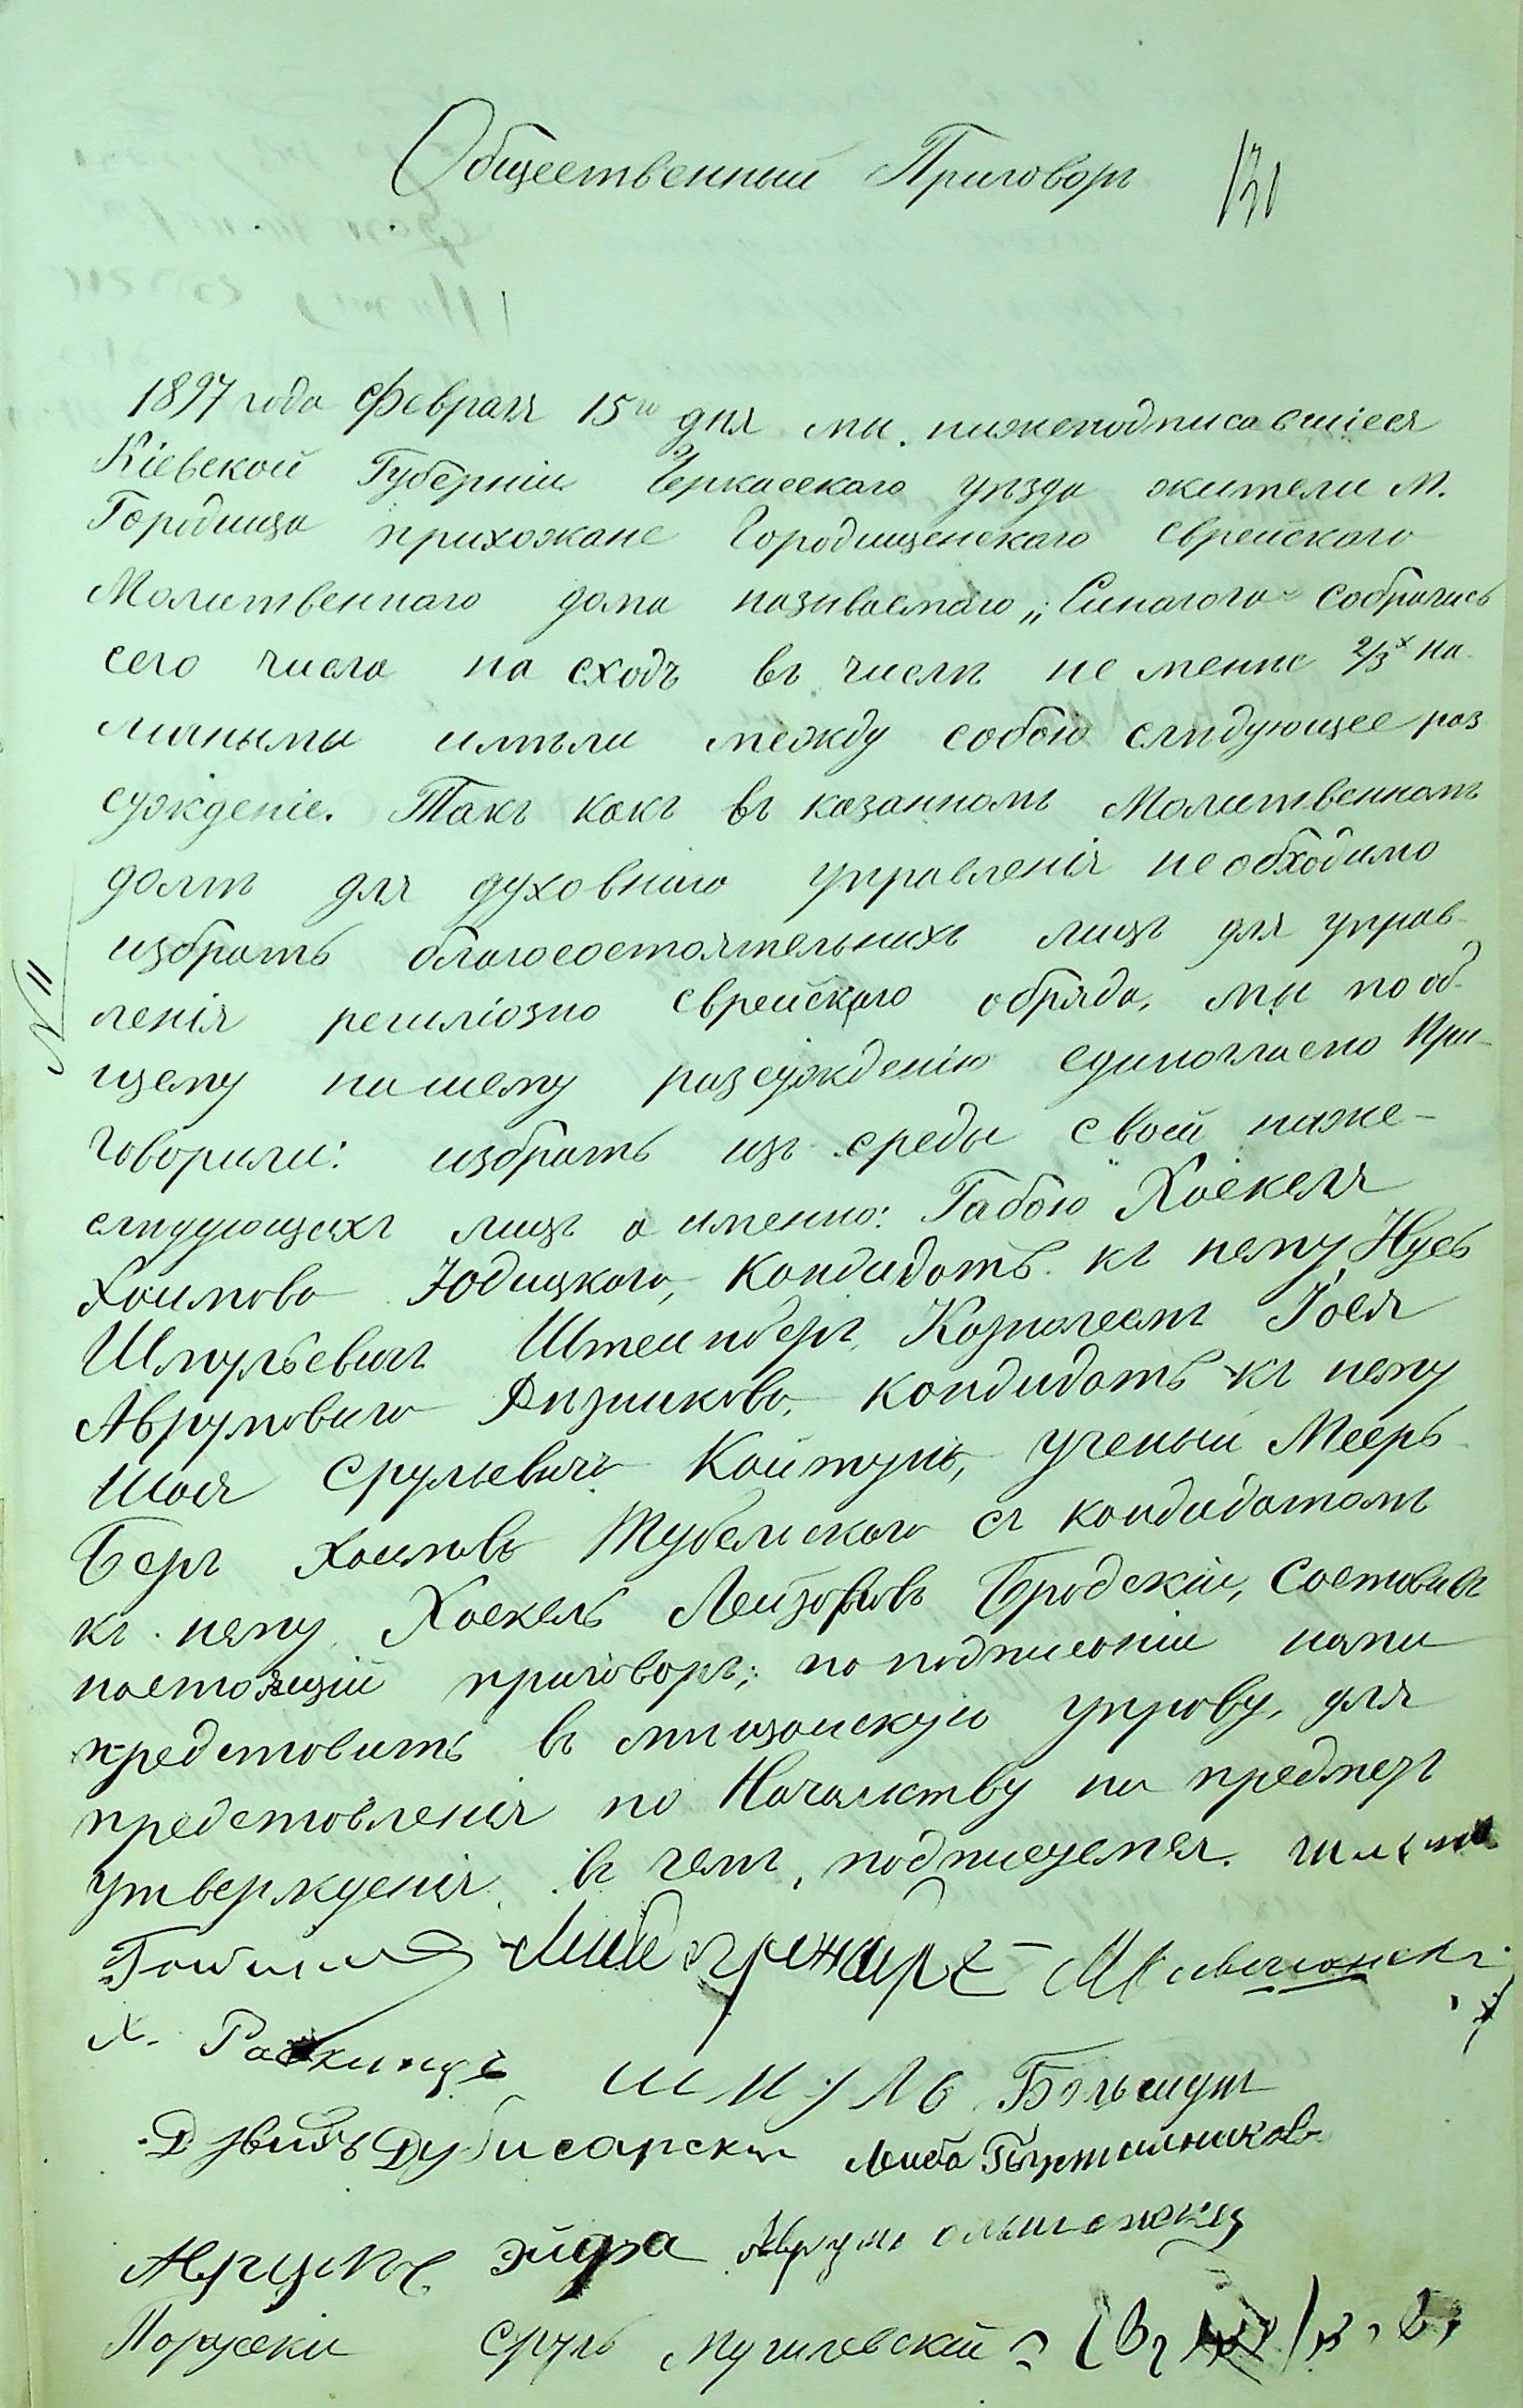 Общественный Приговоръ
1897 года Февраля 15го дня мы нижеподписавшіеся
Кіевской Губерніи Черкасскаго уѣзда жители м.
Городища прихожане Городищенскаго Еврейскаго
Молитвеннаго дома называемаго „Синагога" собрались
сего числа на сходъ въ числѣ не менѣе 2/3х на-
личными имѣли между собою слѣдующее раз
сужденіе. Такъ какъ въ казанномъ Молитвенномъ
домѣ для духовного управленія необходимо
избрать благосостоятельныхъ лицъ для управ-
ленія религіозно Еврейскаго обряда, мы по об-
щему нашему разсужденію единогласно При-
говорили: избрать изъ среды своей ниже-
слѣдующихъ лицъ а именно: Габою Хаскеля
Хаимова Юдицкаго, Кандидатъ къ нему Нусь
Шмульевичъ Штейнберг, Казначеемъ Іося
Аврумовича Резникова, кандидатъ къ нему
Шая Срульевичъ Койтунъ, ученый Мееръ
Беръ Хаимовъ Тубельскаго съ кандидатомъ
къ нему Хаскель Лейзоровъ Бродскій, Составивъ
настоящій приговоръ; по подписаніи нами
представить въ мѣщанскую управу, для
представленія по Начальству на предметъ
утвержденія въ чемъ, подписуемся.
Х.
Шмуль Большун
Дубисарскій Лейба
Эйдра Аврумъ Ольшанскій
Сруль Мугилевскій
№ 11